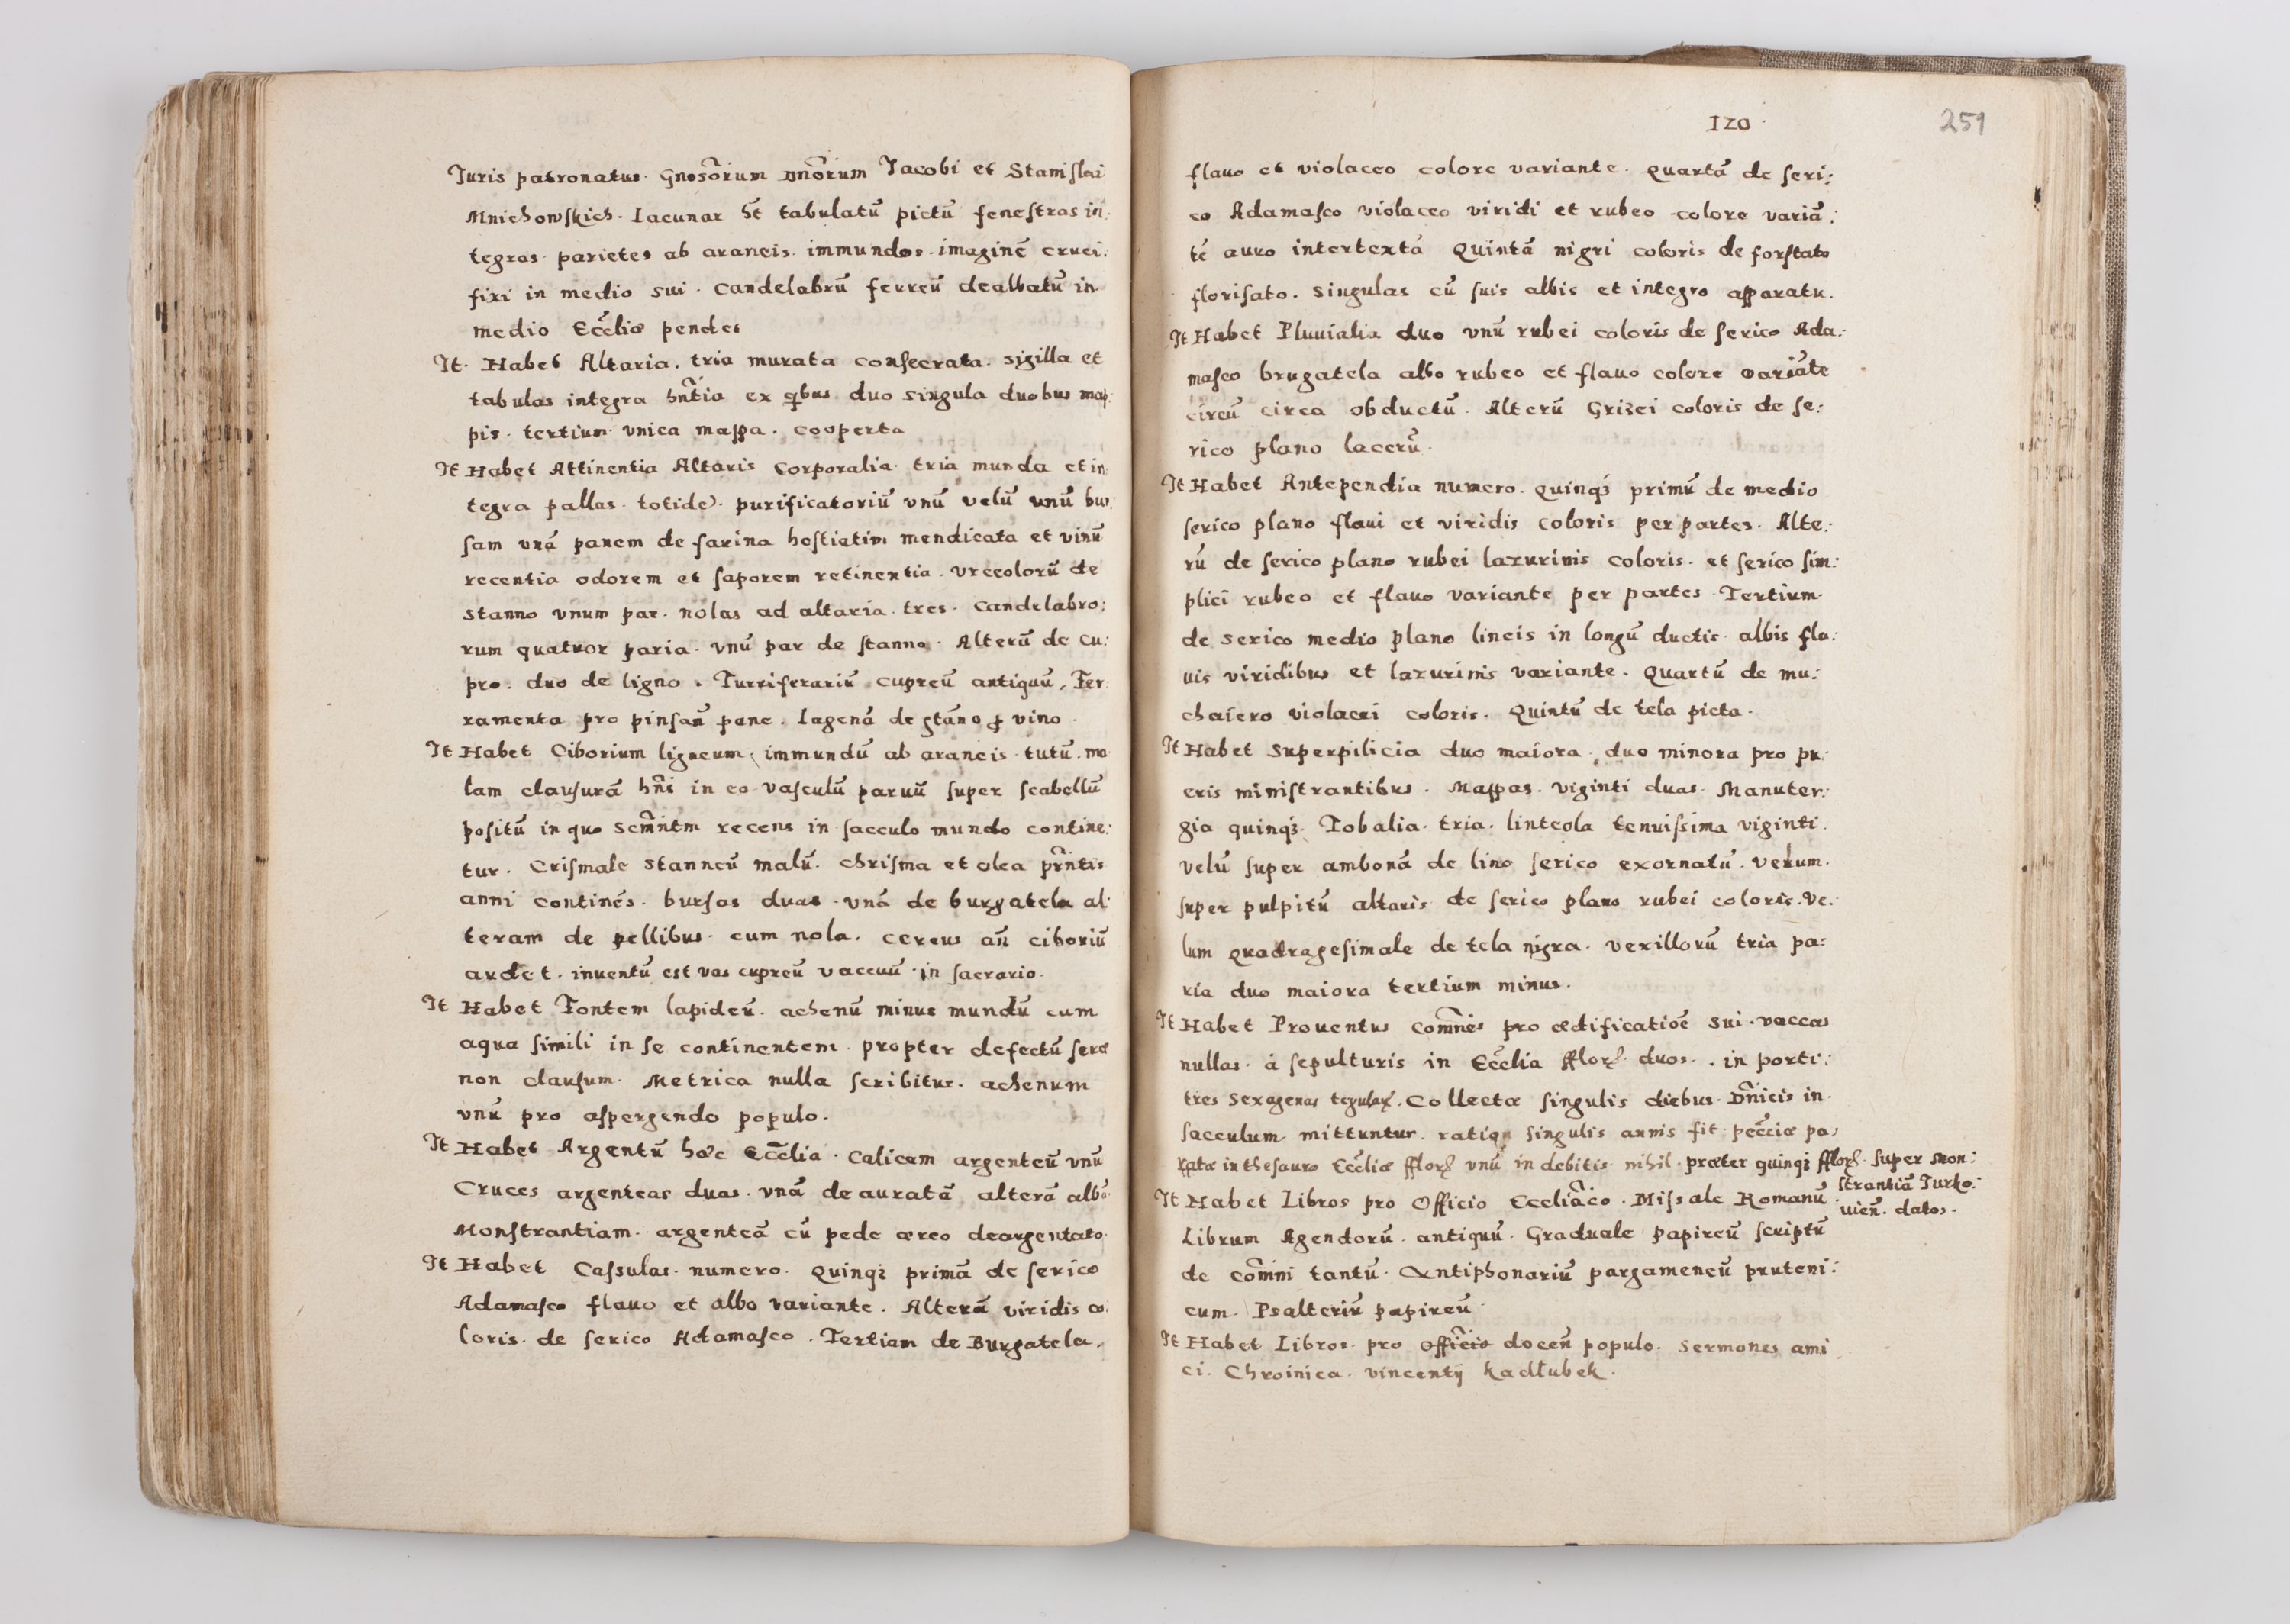 Juris patronatus. Gnosõrum Dnõrum Jacobi et Stanislai
Mnichowskich. Lacunar ht̃ tabulatũ pictũ fenestras in:
tegras. parietes ab araneis. immundos. imaginẽ cruci:
fixi in medio sui. Candelabrũ ferreũ dealbatũ in
medio Ecc̃liæ pendet
It. Habet Altaria. tria murata consecrata. sigilla et
tabulas integra hñtia ex qbus duo singula duobus map:
pis. tertium vnica mappa. cooperta
It Habet Attinentia Altaris Corporalia. tria munda et in:
tegra pallas. totidẽ. purificatoriũ vnũ velũ vnũ bur:
sam vnã panem de farina hostiatim mendicata et vinũ
recentia odorem et saporem retinentia. Vrceolorũ de
stanno vnum par. nolas ad altaria. tres. Candelabro:
rum quatuor paria. vnũ par de stanno. Alterũ de cu:
pro. duo de ligno. Turriferariũ cupreũ antiquũ, Fer:
ramenta pro pinsañ pane. Lagenã de stãno p vino.
It Habet Ciborium ligneum, immundũ ab araneis. tutũ. ma
lam clausurã hñs in eo vasculũ paruũ super scabellũ
positũ in quo Scm̃ntm recens in sacculo mundo contine:
tur. Crismale stanneũ malũ. Chrisma et olea pr̃ntis
anni continẽs. bursas duas. vnã de burgatela al:
teram de pellibus. cum nola. cereus añ ciboriũ
ardet. inuentũ est vas cupreũ vaccuũ in sacrario.
It Habet Fontem lapideũ. achenũ minus mundũ cum
aqua simili in se continentem. propter defectũ seræ
non clausum. Metrica nulla scribitur. achenum
vnũ pro aspergendo populo.
It Habet Argentũ hæc Ecc̃lia. Calicem argenteũ vnũ
Cruces argenteas duas. vnã deauratã alterã albã
Monstrantiam. argenteã cũ pede æreo deargentato.
It Habet Cassulas. numero. quinqȝ primã de serico
Adamasco flauo et albo variante. Alterã viridis co:
loris. de serico Adamasco. Tertiam de Burgatela.
120.
251
flauo et violaceo colore variante. Quartã de seri:
co Adamasco violaceo viridi et rubeo colore variã:
tẽ auro intertextã Quintã nigri coloris de forstato
florisato. Singulas cũ suis albis et integro apparatu.
It Habet Pluuialia duo vnũ rubei coloris de serico Ada:
masco brugatela albo rubeo et flauo colore variãte
circũ circa obductũ. Alterũ Grisei coloris de se:
rico plano lacerũ.
It Habet Antependia numero. quinqȝ primũ de medio
serico plano flaui et viridis coloris per partes. Alte:
rũ de serico plano rubei lazurinis coloris. et serico sim:
plici rubeo et flauo variante per partes. Tertium
de serico medio plano lineis in longũ ductis albis fla:
uis viridibus et lazurinis variante. Quartũ de mu:
chaiero violacei coloris. Quintũ de tela picta.
It Habet Superpilicia duo maiora. duo minora pro pu:
eris ministrantibus. Mappas. viginti duas. Manuter:
gia quinqȝ. Tobalia. tria. linteola tenuissima viginti.
velũ super ambonã de lino serico exornatũ. Velum.
super pulpitũ altaris de serico plano rubei coloris. Ve:
lum quadragesimale de tela nigra. vexillorũ tria pa:
ria duo maiora tertium minus.
It Habet Prouentus com̃nes pro ædificatiõe sui. vaccas
nullas. à sepulturis in Ecc̃lia fflorȝ. duos. in porti:
tres sexagenas. Collectæ singulis diebus. Dñicis in.
sacculum mittuntur. ratio singulis annis fit pecc̃iæ pa:
ratæ in thesauro Ecc̃liæ fflorȝ vnũ in debitis nihil. præter quinqȝ fflorȝ. super mon:
strantiã Turko:
uieñ. datos.
It Habet Libros pro Officio Eccliãco. Missale Romanũ.
Librum Agendorũ. antiquũ. Graduale papireũ scriptũ
de com̃ni tantũ. Antiphonariũ pargameneũ pruteni:
cum. Psalteriũ papireũ.
It Habet Libros. pro officio doceñ populo. Sermones ami
ci. Chroinica. vincentij Kadłubek.